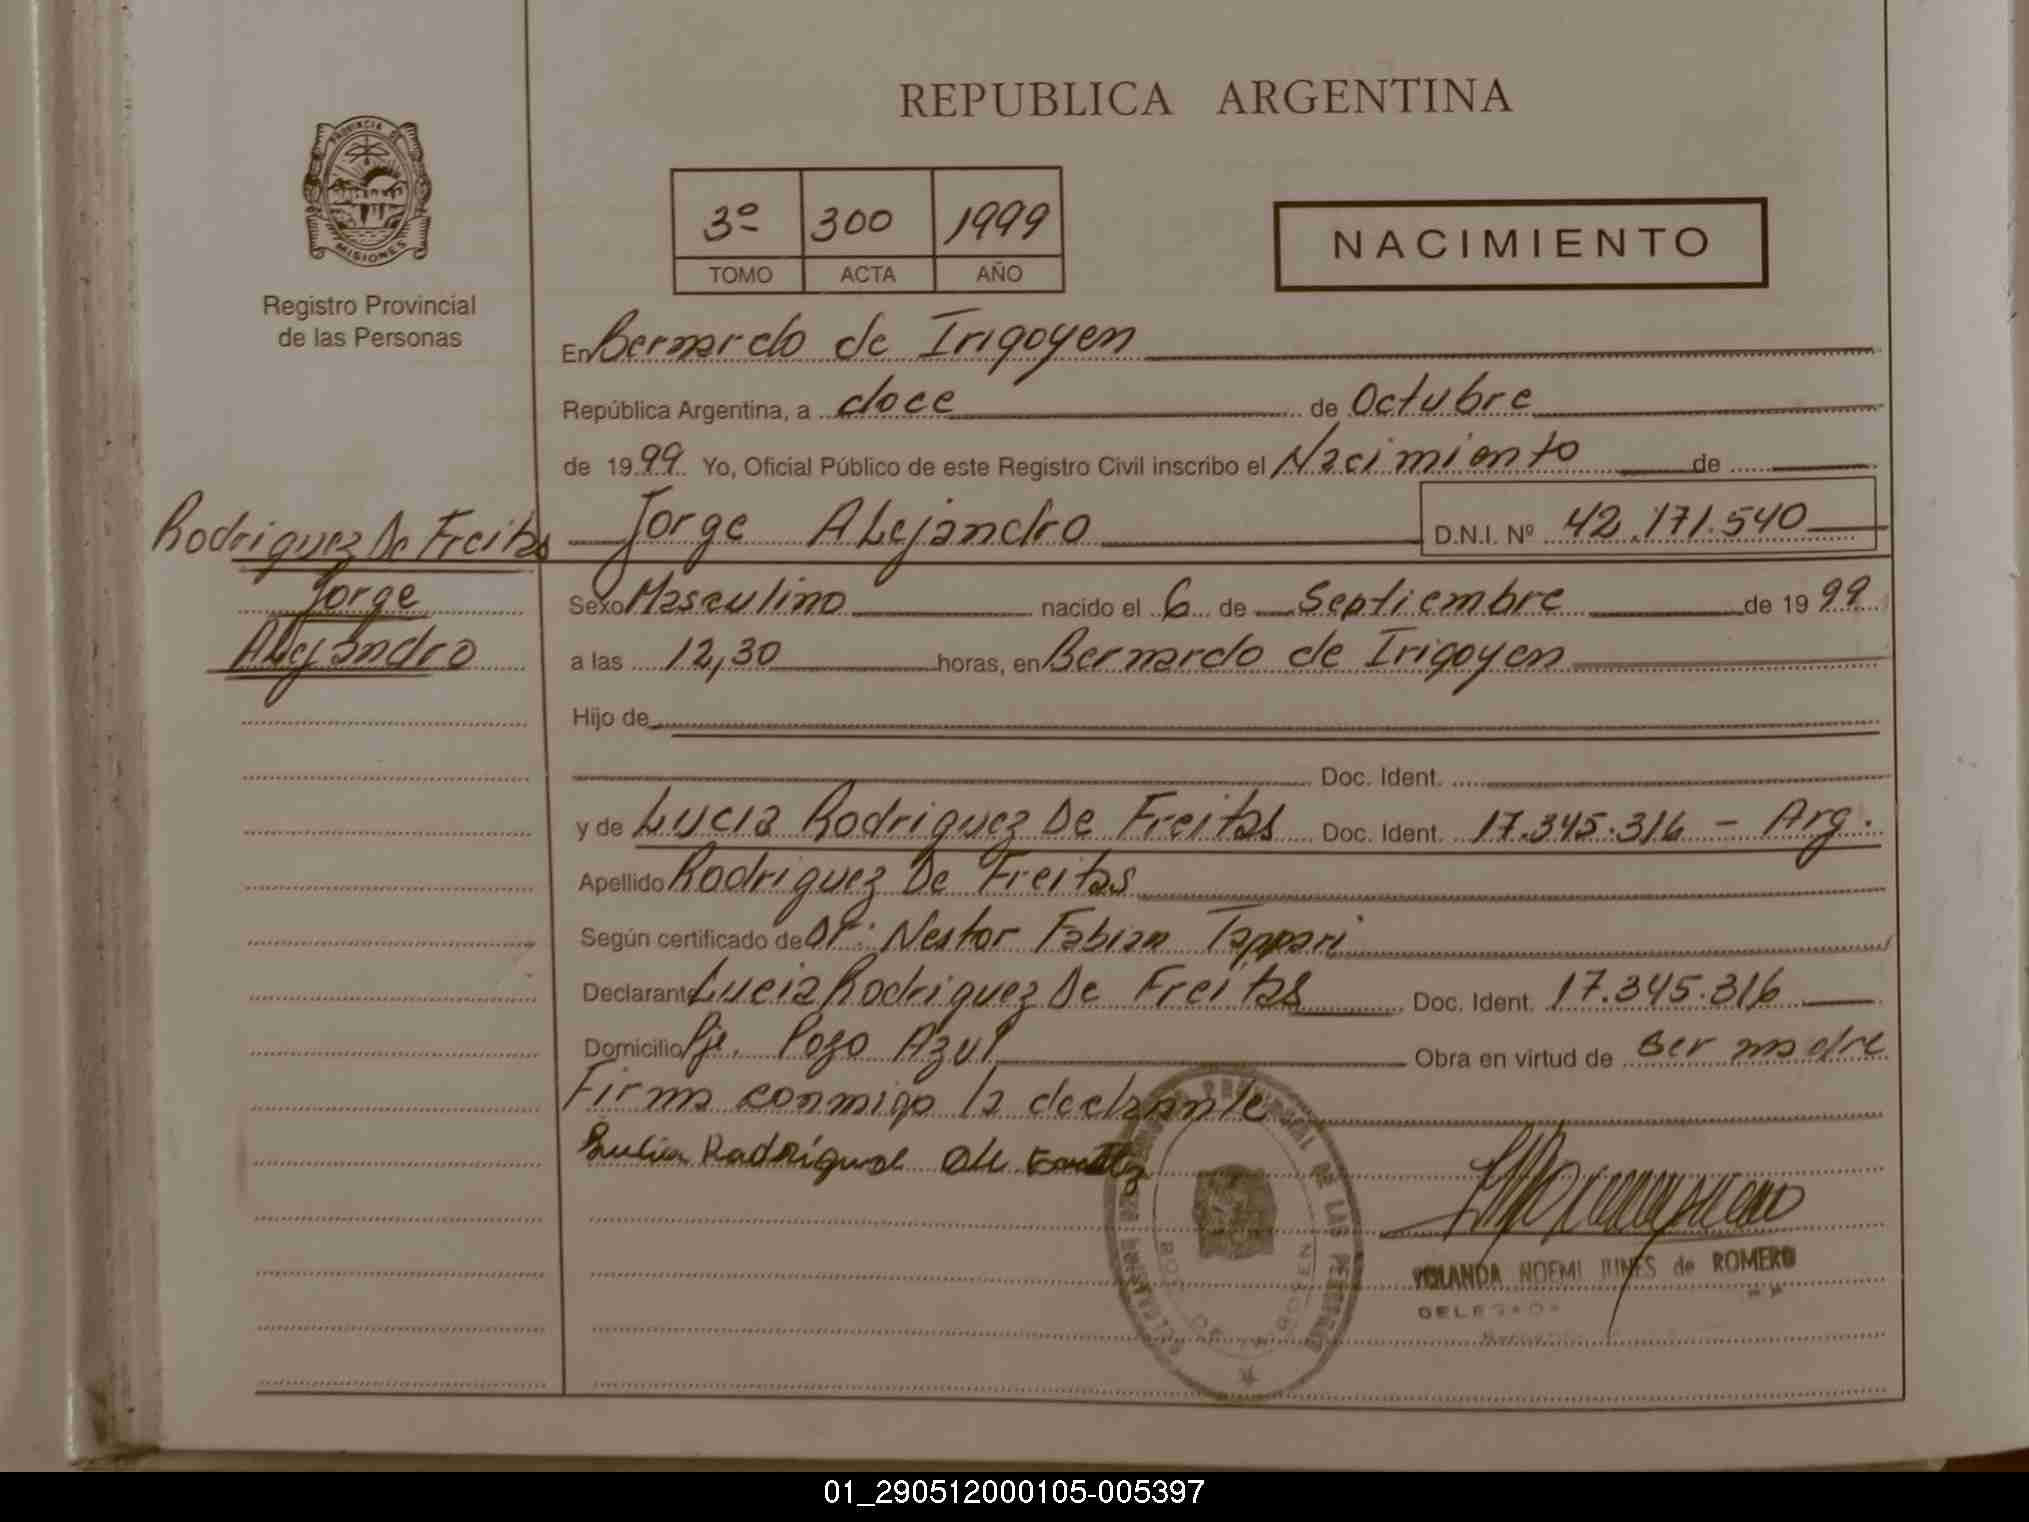 REPUBLICA ARGENTINA
PROVINCIA DE
MISIONES
Registro Provincial
de las Personas
3º 300 1999
TOMO ACTA AÑO
NACIMIENTO
En Bernardo de Irigoyen
República Argentina, a doce de Octubre
de 1999 Yo, Oficial Público de este Registro Civil inscribo el Nacimiento de
Jorge Alejandro D.N.I. Nº 42.171.540
Rodriguez De Freitas
Jorge
Alejandro
Sexo Masculino nacido el 6 de Septiembre de 1999
a las 12,30 horas, en Bernardo de Irigoyen
Hijo de
Doc. Ident.
y de Lucia Rodriguez De Freitas Doc. Ident. 17.345.316 - Arg.
Apellido Rodriguez De Freitas
Según certificado de Dr. Nestor Fabian Tappari
Declarante Lucia Rodriguez De Freitas Doc. Ident. 17.345.316
Domicilio Pje. Pozo Azul Obra en virtud de ser madre
Firma conmigo la declarante
YOLANDA NOEMI de ROMERO
01_290512000105-005397